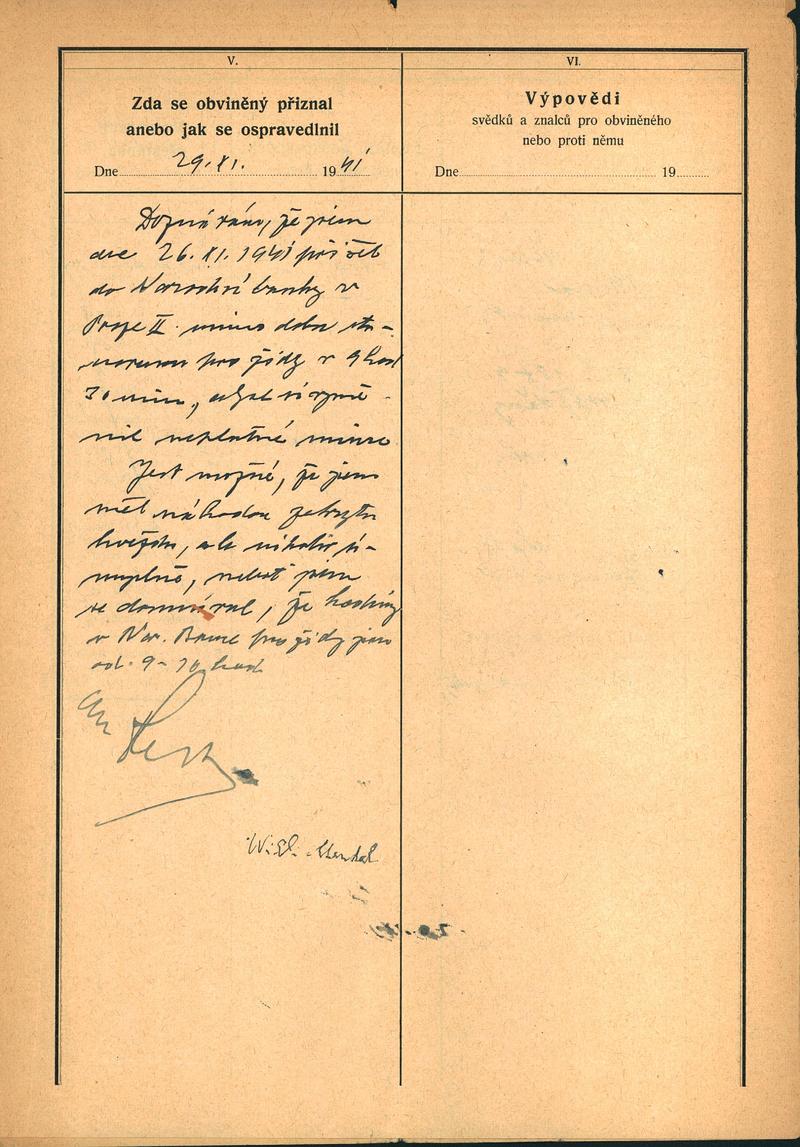 V.
Zda se obviněný přiznal
anebo jak se ospravedlnil
Dne 29.XI. 1941
Doznávám, že jsem
dne 26.XI.1941 přišel
do Národní banky v
Praze II. mimo dobu sta-
novenou pro židy v 9 hod
30 min,
neplatné mince
Jest možné, že jsem
měl náhodou zakrytu
hvězdu, ale nikoliv ú-
myslně, neboť jsem
se domníval, že hodiny
v Nár. Bance pro židy jsou
od 9-10 hod
VI.
Výpovědi
svědků a znalců pro obviněného
nebo proti němu
Dne 19